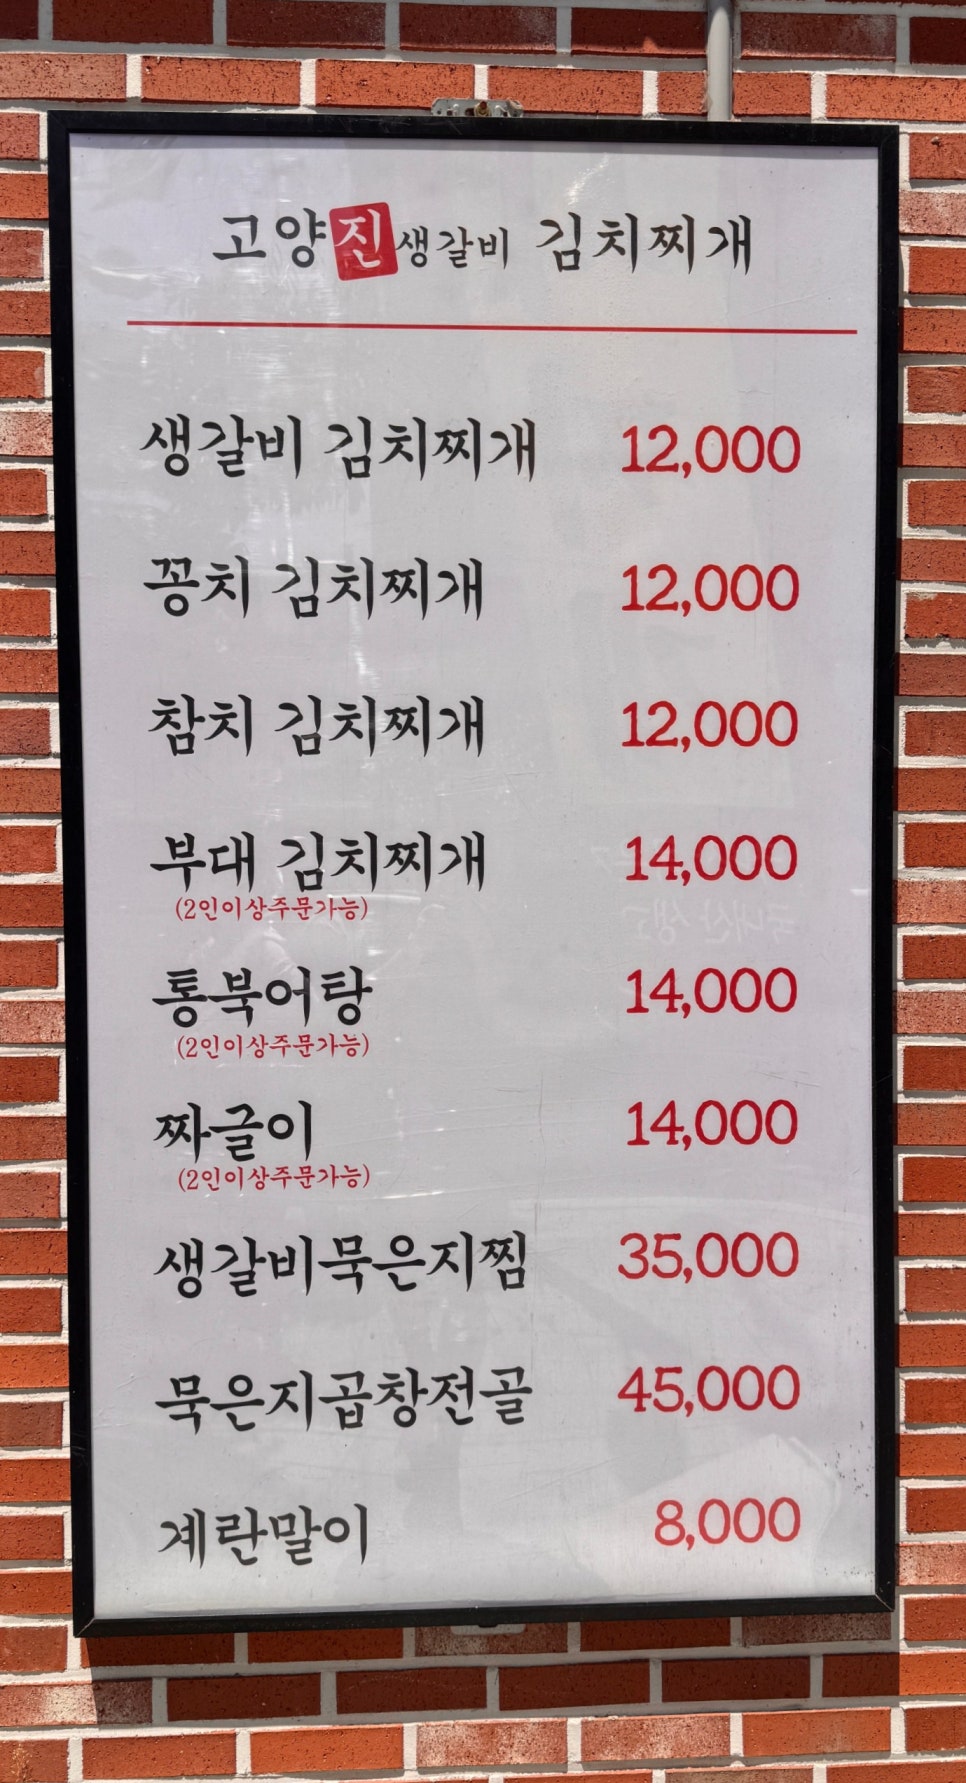 고양진생갈비 김치찌개
생갈비 김치찌개 12,000
꽁치 김치찌개 12,000
참치 김치찌개 12,000
부대 김치찌개 14,000
(2인이상주문가능)
통북어탕 14,000
(2인이상주문가능)
짜글이 14,000
(2인이상주문가능)
생갈비묵은지찜 35,000
묵은지곱창전골 45,000
계란말이 8,000